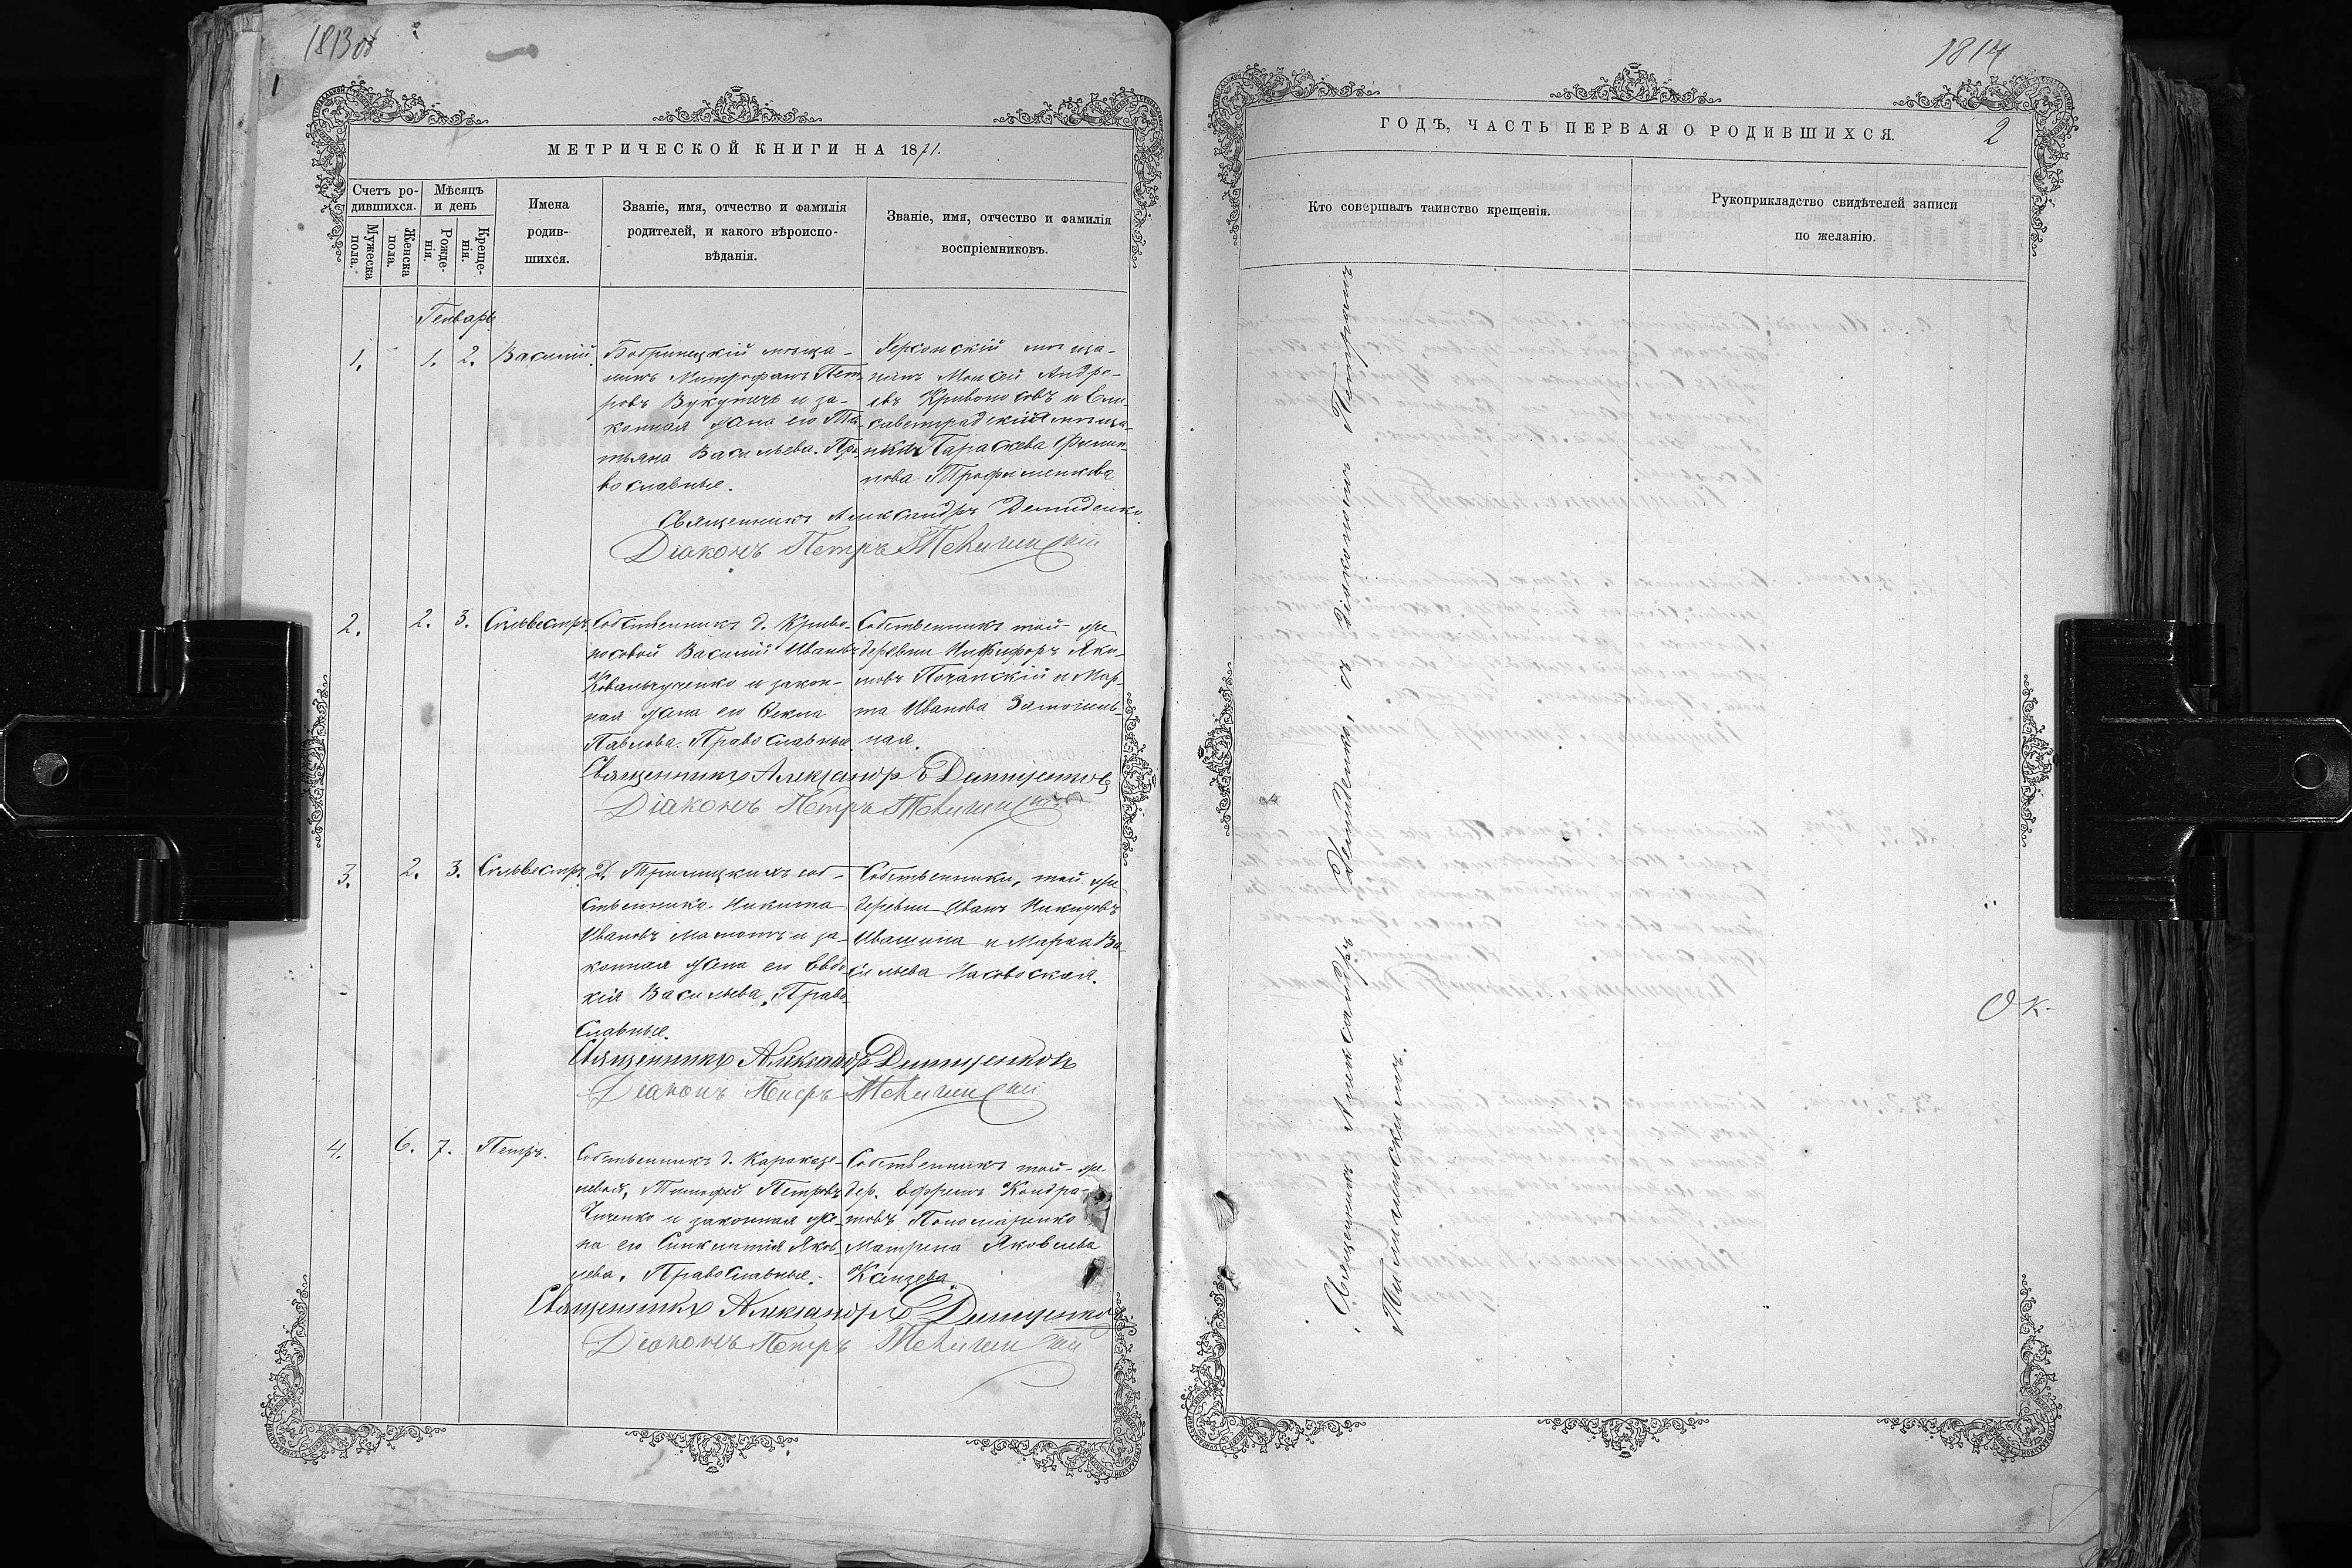 1813 об
1
МЕТРИЧЕСКОЙ КНИГИ НА 1871.
Счетъ ро-
дившихся.
Мужеска
пола.
Женска
пола.
Мѣсяцъ
и день
Рожде-
нія.
Креще-
нія.
Имена
родив-
шихся.
Званіе, имя, отчество и фамилія
родителей, и какого вѣроиспо-
вѣданія.
Званіе, имя, отчество и фамилія
воспріемниковъ.
Генварь
1.
1. 2.
Василій
Бобринецкій мѣща-
нинъ Митрофанъ Пет-
ровъ Вукутачъ и за-
конная жена его Та-
тьяна Васильева. Пра-
вославные.
Херсонскій мѣща-
нинъ Моисей Андре-
евъ Кривоносовъ и Ели-
саветградская мѣща-
нка Параскева Филип-
пова Трофименкова
Священникъ Александръ Демиденко
Діаконъ Петръ
2.
2. 3.
Сильвестръ.
Собственникъ д. Криво-
носовой Василій Ивановъ
Ковальчученко и закон-
ная жена его Ѳекла
Павлова. Православные
Собственникъ той-же
деревни Никифоръ Яки-
мовъ Почапскій и Мар-
та Иванова Замогиль-
ная.
Священникъ Александръ
Діаконъ Петръ
3.
2. 3.
Сильвестръ.
Д. соб-
ственника Никита
Ивановъ Мамотъ и за-
конная жена его Евдо-
кія Васильева. Право-
славные.
Собственники, той же
деревни Иванъ
Ивашина и Марѳа Ва-
сильева
Священникъ Александръ
Діаконъ Петръ
4.
6. 7.
Петръ.
Собственникъ д. Караказе-
левой, Тимофей Петровъ
Чиченко и законная же-
на его Синклитія Яков-
лева. Православные.
Собственникъ той-же
дер. Ефремъ Кондра-
товъ Пономаренко
Матрена Яковлева
Канзева.
Священникъ Александръ
Діаконъ Петръ
1814
2
ГОДЪ, ЧАСТЬ ПЕРВАЯ О РОДИВШИХСЯ.
Кто совершалъ таинство крещенія.
Рукоприкладство свидѣтелей записи
по желанію.
Священникъ Александръ Демиденко, съ діакономъ Петромъ
ОК-